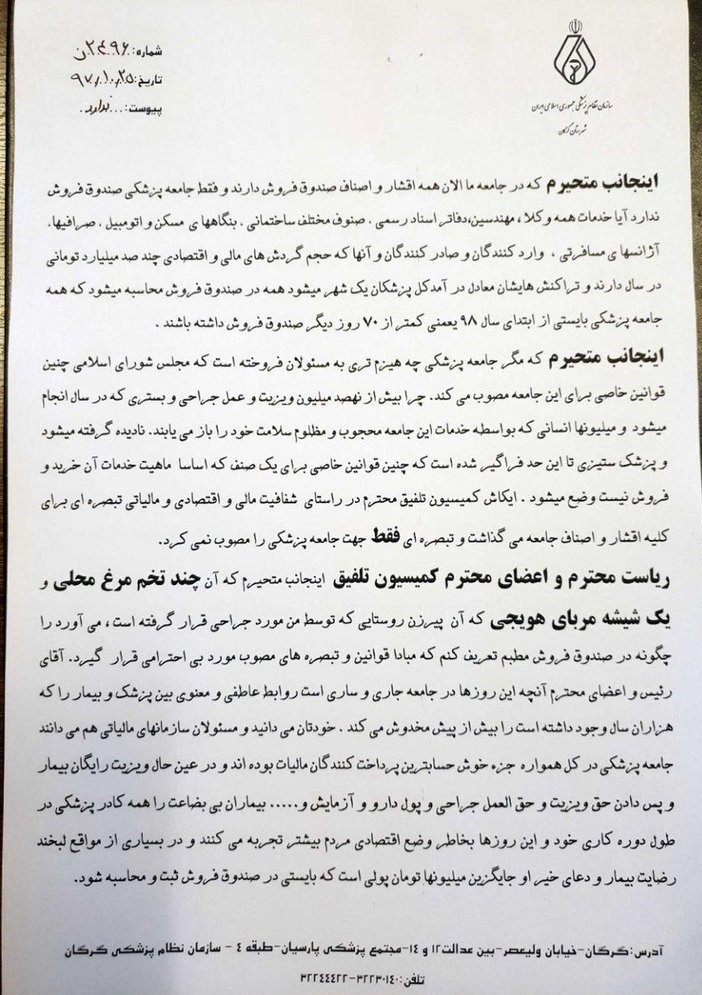 شماره: ۲۴۹۶ن
تاریخ: ۹۷/۱۰/۲۵
پیوست: ندارد.
سازمان نظام پزشکی جمهوری اسلامی ایران
شهرستان گرگان
اینجانب متحیرم که در جامعه ما الان همه اقشار و اصناف صندوق فروش دارند و فقط جامعه پزشکی صندوق فروش
ندارد آیا خدمات همه وکلا ، مهندسین،دفاتر اسناد رسمی . صنوف مختلف ساختمانی . بنگاهها ی مسکن و اتومبیل . صرافیها.
آژانسها ی مسافرتی ، وارد کنندگان و صادر کنندگان و آنها که حجم گردش های مالی و اقتصادی چند صد میلیارد تومانی
در سال دارند و تراکنش هایشان معادل در آمدکل پزشکان یک شهر میشود همه در صندوق فروش محاسبه میشود که همه
جامعه پزشکی بایستی از ابتدای سال ۹۸ یعمنی کمتر از ۷۰ روز دیگر صندوق فروش داشته باشند .
اینجانب متحیرم که مگر جامعه پزشکی چه هیزم تری به مسئولان فروخته است که مجلس شورای اسلامی چنین
قوانین خاصی برای این جامعه مصوب می کند. چرا بیش از نهصد میلیون ویزیت و عمل جراحی و بستری که در سال انجام
میشود و میلیونها انسانی که بواسطه خدمات این جامعه محجوب و مظلوم سلامت خود را باز می یابند. نادیده گرفته میشود
و پزشک ستیزی تا این حد فراگیر شده است که چنین قوانین خاصی برای یک صنف که اساسا ماهیت خدمات آن خرید و
فروش نیست وضع میشود . ایکاش کمیسیون تلفیق محترم در راستای شفافیت مالی و اقتصادی و مالیاتی تبصره ای برای
کلیه اقشار و اصناف جامعه می گذاشت و تبصره ای فقط جهت جامعه پزشکی را مصوب نمی کرد.
ریاست محترم و اعضای محترم کمیسیون تلفیق اینجانب متحیرم که آن چند تخم مرغ محلی و
یک شیشه مربای هویجی که آن پیرزن روستایی که توسط من مورد جراحی قرار گرفته است ، می آورد را
چگونه در صندوق فروش مطبم تعریف کنم که مبادا قوانین و تبصره های مصوب مورد بی احترامی قرار گیرد. آقای
رئیس و اعضای محترم آنچه این روزها در جامعه جاری و ساری است روابط عاطفی و معنوی بین پزشک و بیمار را که
هزاران سال وجود داشته است را بیش از پیش مخدوش می کند . خودتان می دانید و مسئولان سازمانهای مالیاتی هم می دانند
جامعه پزشکی در کل همواره جزء خوش حسابترین پرداخت کنندگان مالیات بوده اند و در عین حال ویزیت رایگان بیمار
و پس دادن حق ویزیت و حق العمل جراحی و پول دارو و آزمایش و..... بیماران بی بضاعت را همه کادر پزشکی در
طول دوره کاری خود و این روزها بخاطر وضع اقتصادی مردم بیشتر تجربه می کنند و در بسیاری از مواقع لبخند
رضایت بیمار و دعای خیر او جایگزین میلیونها تومان پولی است که بایستی در صندوق فروش ثبت و محاسبه شود.
آدرس:گرگان-خیابان ولیعصر-بین عدالت۱۲ و ۱۴-مجتمع پزشکی پارسیان-طبقه ۴ - سازمان نظام پزشکی گرگان
تلفن:۳۲۲۳۰۱۴۰-۳۲۲۴۴۴۲۲